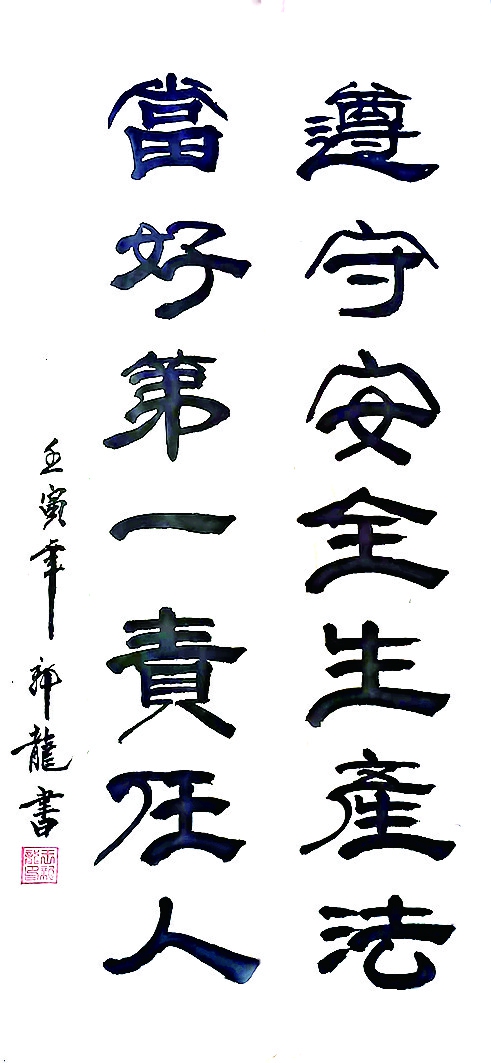 遵守安全生產法
當好第一責任人
壬寅年 郭龍書